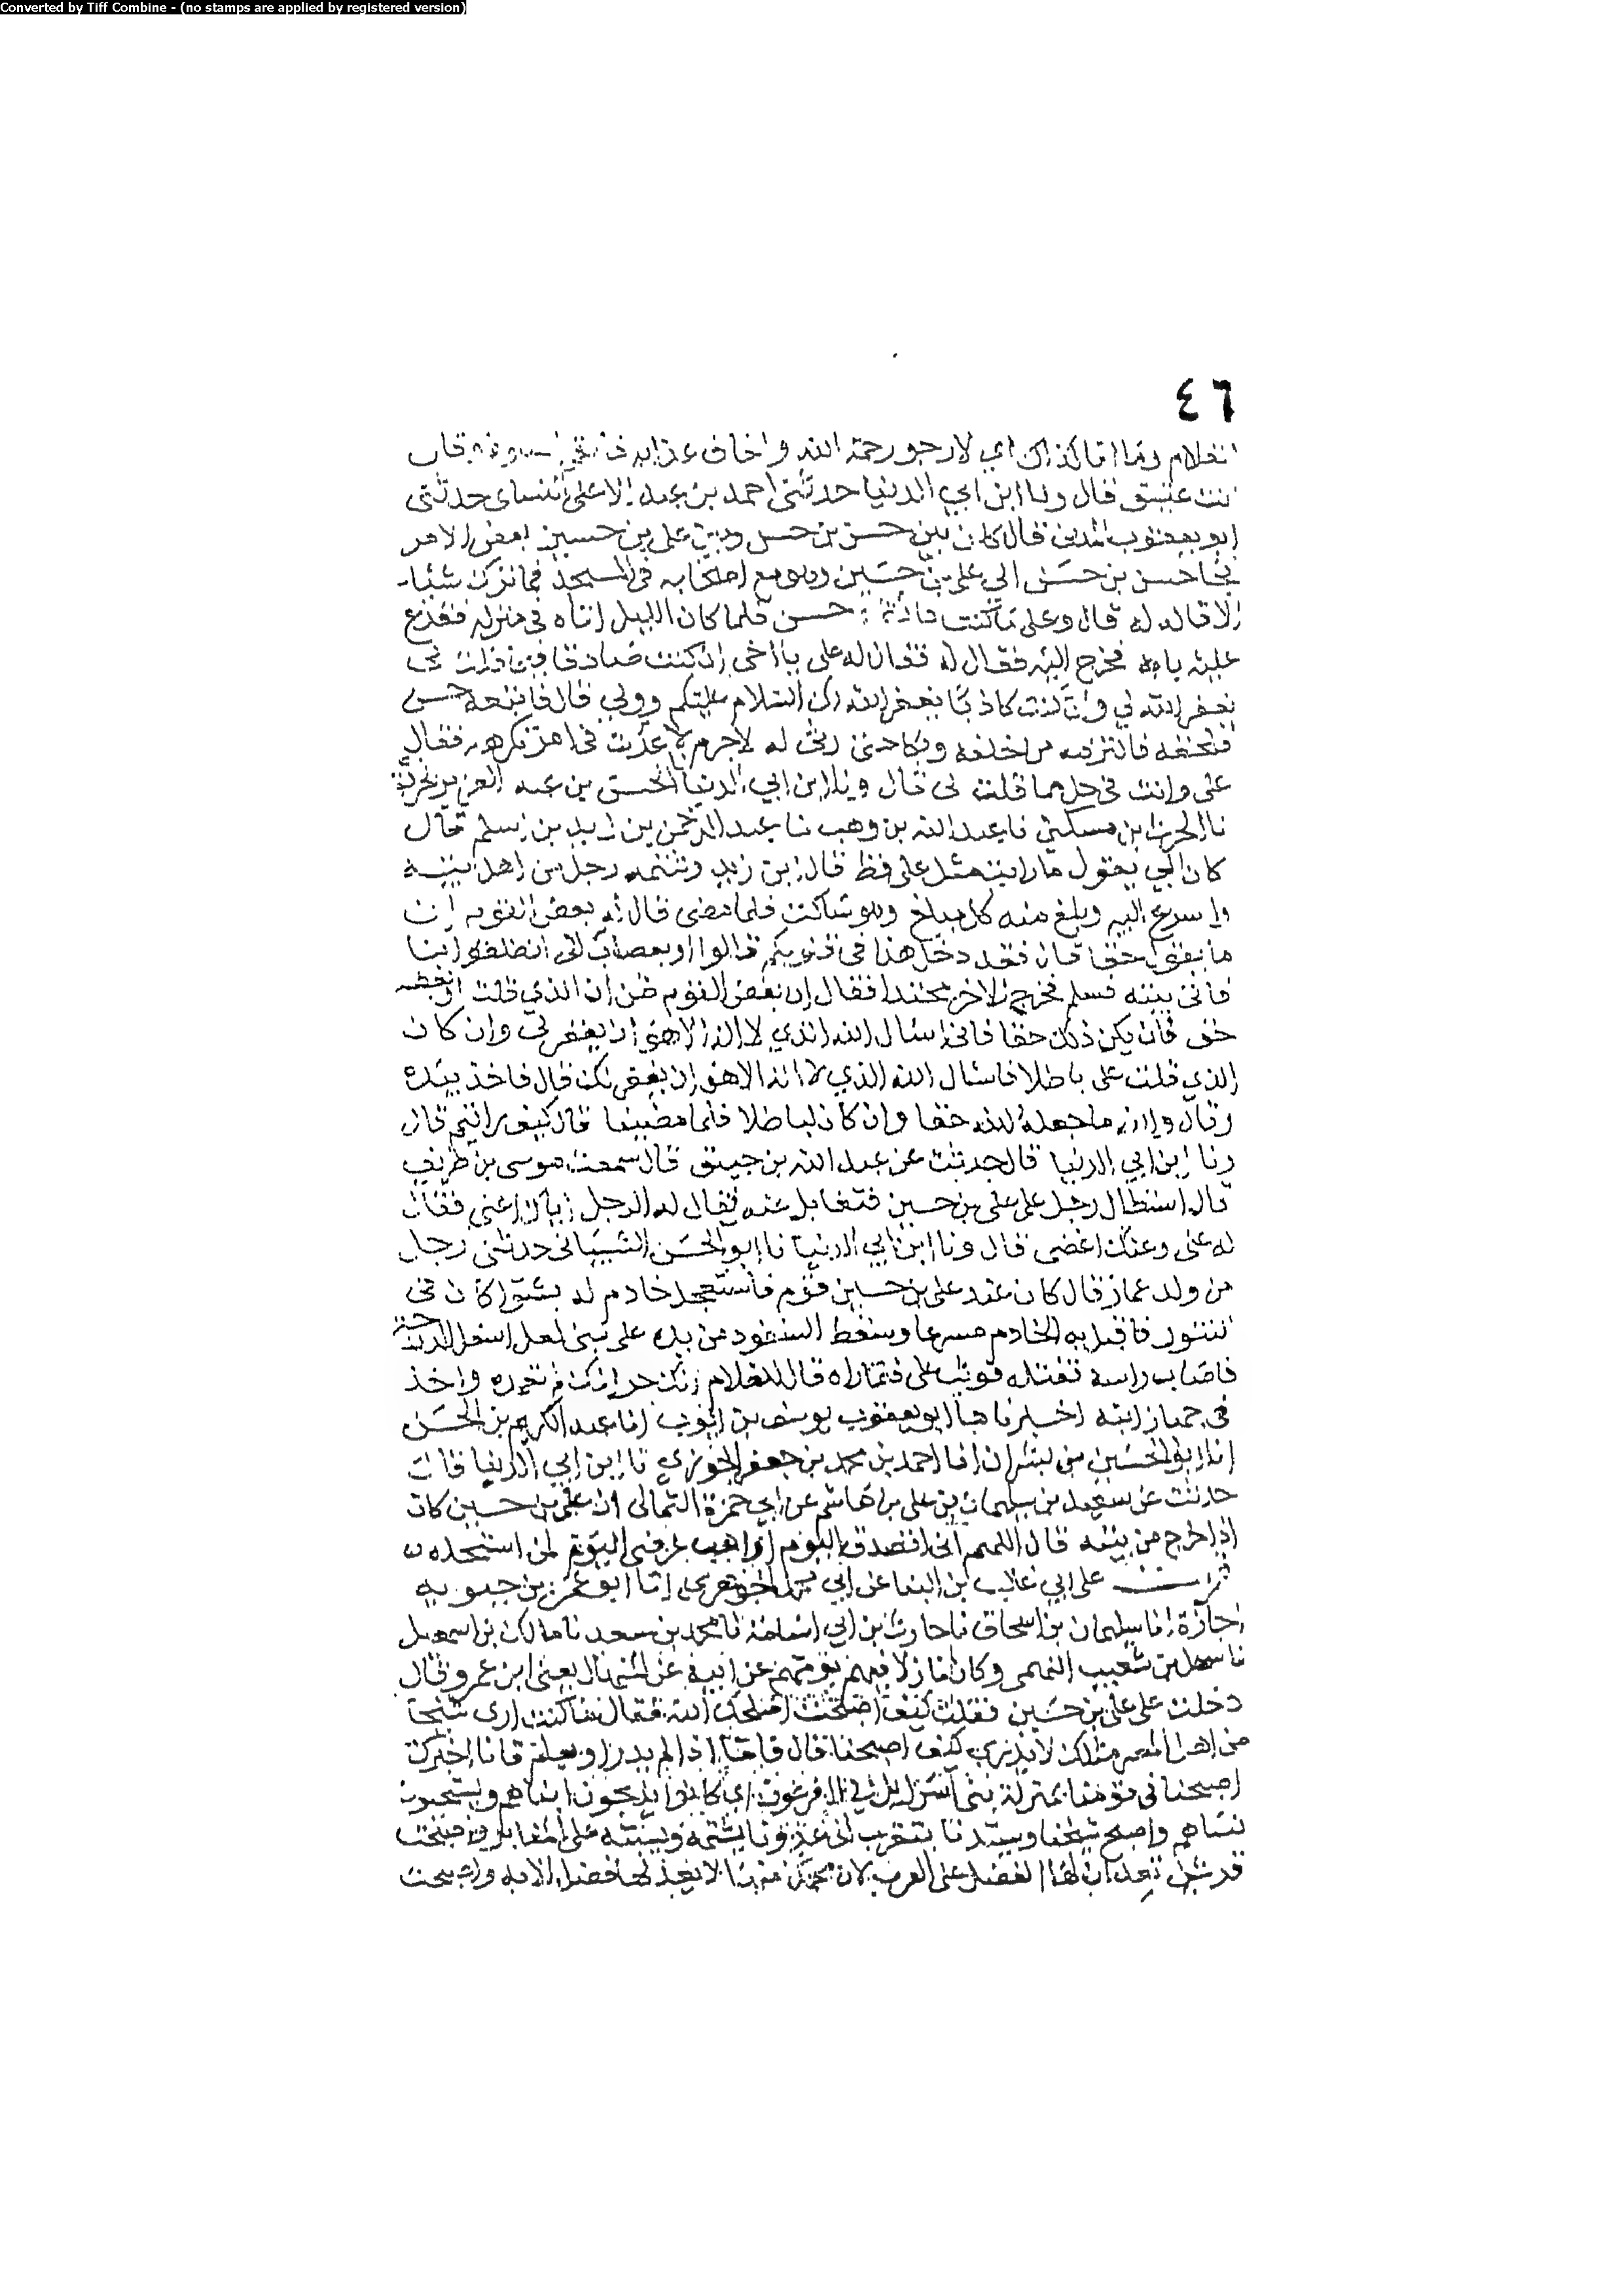 Converted by Tiff Combine - (no stamps are applied by registered version)
٤٦
الغلام وما انا كذاك اي لارجو رحمة الله واخاف عذابه قال
انت عتيق قال ونا ابن ابي الدنيا حدثني احمد بن عبد الاعلى الشيباني حدثني
ابو يعقوب المدني قال كان بين حسن بن حسن وبين علي بن حسين بعض الامر
فجا حسن بن حسن الى علي بن حسين وهو مع اصحابه في المسجد فما ترك شيئا
الا قاله له قال وعلي ساكت حسن فلما كان الليل اتاه في منزله فقرع
عليه بابه فخرج اليه فقال له علي يا اخي ان كنت صادقا فيما قلت لي
يغفر الله لي وان كنت كاذبا يغفر الله لك السلام عليكم وولى قال فاتبعه حسن
فلحقه فالتزمه من خلفه وبكا حتى رثى له لا جرم لا عدت في امر تكرهه فقال
علي وانت في حل مما قلت لي قال ونا ابن ابي الدنيا نا الحسن بن عبد العزيز الجروي
نا الحرث بن مسكين نا عبد الله بن وهب نا عبد الرحمن بن زيد بن اسلم قال
كان ابي يقول ما رايت مثل علي قط قال ابن زيد وشتمه رجل من اهل بيته
واسرع اليه وبلغ منه كل مبلغ وهو ساكت فلما مضى قال له بعض القوم
فاتى بيته فسلم فخرج الاخر فقال ان بعض القوم ظن ان الذي قلت
حق فان يكن ذلك حقا فاني اسال الله الذي لا اله الا هو ان يغفر لي وان كان
الذي قلت علي باطلا فاسال الله الذي لا اله الا هو ان يغفر لك قال فاخذ بيده
وقال والله ما جعله الله حقا وان كان لباطلا فلما مضينا قال كيف رايتم قال
ونا ابن ابي الدنيا قال حدثت عن عبد الله بن خبيق قال سمعت موسى بن طريف
قال استطال رجل على علي بن حسين فتغافل عنه فقال له الرجل اياك اعني فقال
له علي وعنك اغضي قال ونا ابن ابي الدنيا نا ابو الحسن الشيباني حدثني رجل
من ولد عمار قال كان عند علي بن حسين قوم فاستعجل خادم له بشوا كان في
التنور فاقبل به الخادم مسرعا وسقط السفود من يده على بني لعلي اسفل الدرجة
فاصاب راسه فقتله فوثب علي فلما راه قال للغلام انك حر انك لم تعمده واخذ
في جهاز ابنه اخبرنا ابو يعقوب يوسف بن ايوب انا عبد الكريم بن الحسن
انا ابو الحسين بن بشران انا احمد بن محمد بن جعفر الجوزي نا ابن ابي الدنيا قال
حدثت عن سعيد بن سليمان عن علي بن هاشم عن ابي حمزة الثمالي ان علي بن حسين كان
اذا خرج من بيته قال اللهم اني اتصدق اليوم او اهب عرضي اليوم لمن استحله
قرات على ابي غالب بن البنا عن ابي محمد الجوهري انا ابو عمر بن حيويه
اجازة انا سليمان بن اسحاق نا حارث بن ابي اسامة نا محمد بن سعد نا مالك بن اسمعيل
نا سهل بن شعيب النهمي وكان نازلا فيهم يؤمهم عن ابيه عن المنهال يعني ابن عمرو قال
دخلت على علي بن حسين فقلت كيف اصبحت اصلحك الله فقال ما كنت ارى شيخا
من اهل المصر مثلك لا يدري كيف اصبحنا قال فاما اذا لم تدر او تعلم فانا اخبرك
اصبحنا في قومنا بمنزلة بني اسرائيل في ال فرعون اي كانوا يذبحون ابناهم ويستحيون
نساهم واصبح شيخنا وسيدنا يتقرب الى عدونا بشتمه وسبه على المنابر واصبحت
قريش تعد ان لها الفضل على العرب لان محمدا منها لا يعد لها فضل الا به واصبحت